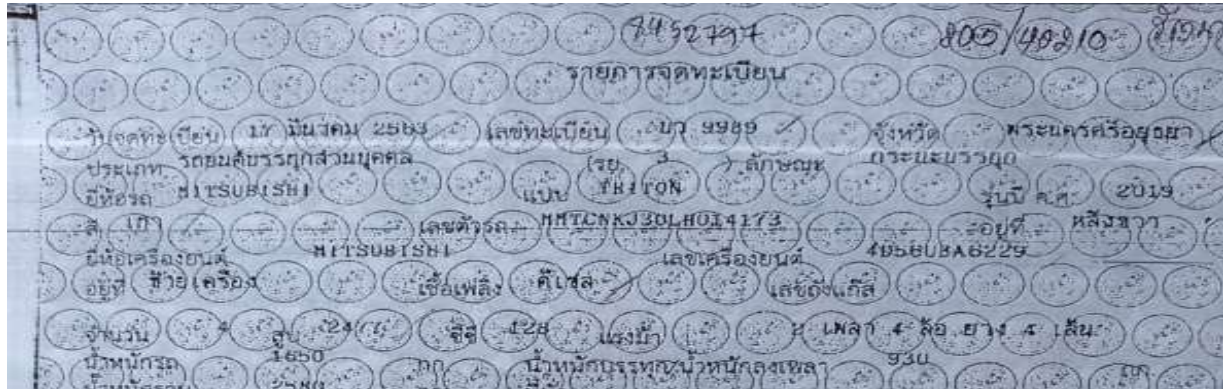 8452797 805/40210
รายการจดทะเบียน
วันจดทะเบียน 17 มีนาคม 2563 เลขทะเบียน 9989 จังหวัด พระนครศรีอยุธยา
ประเภท รถยนต์บรรทุกส่วนบุคคล (รย. 3 ) ลักษณะ กระบะบรรทุก
ยี่ห้อรถ MITSUBISHI แบบ TRITON รุ่นปี ค.ศ. 2019
สี เทา เลขตัวรถ MMTCNKJ30LH014173 อยู่ที่ หลังขวา
ยี่ห้อเครื่องยนต์ MITSUBISHI เลขเครื่องยนต์ 4D56UBA6229
อยู่ที่ ซ้ายเครื่อง เชื้อเพลิง ดีเซล เลขถังแก๊ส
จำนวน 4 สูบ 2477 ซีซี 128 แรงม้า 2 เพลา 4 ล้อ ยาง 4 เส้น
น้ำหนักรถ 1650 กก. น้ำหนักบรรทุก/น้ำหนักลงเพลา 930 กก.
น้ำหนักรวม 2580